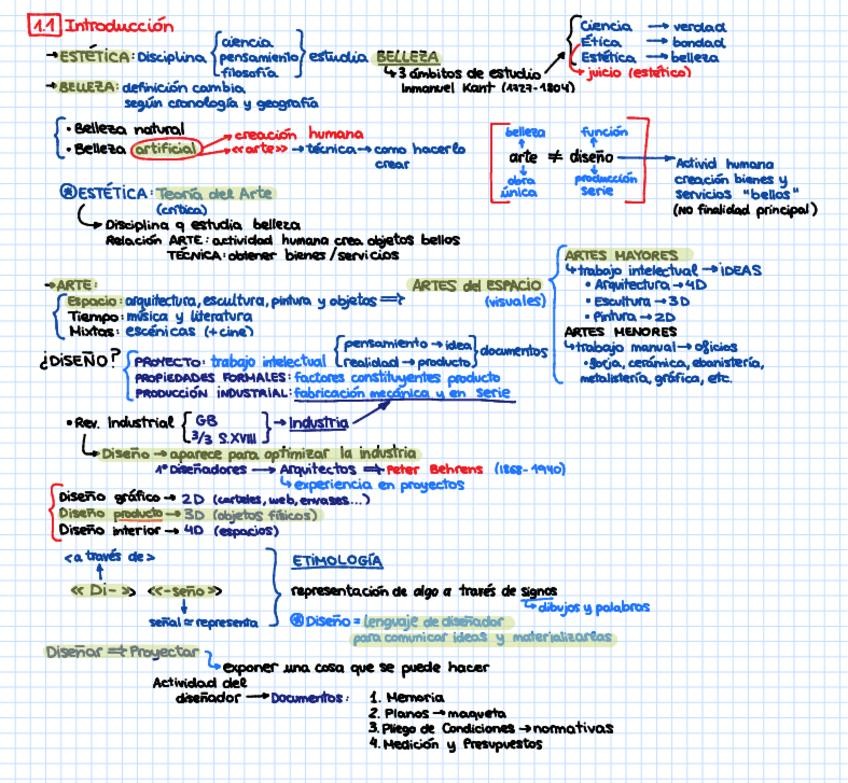 1.1 Introducción
→ESTÉTICA: Disciplina { ciencia pensamiento filosofía } estudia BELLEZA
↳ 3 ámbitos de estudio
Inmanuel Kant (1727-1804)
Ciencia → verdad
Ética → bondad
Estética → belleza
↳ juicio (estético)
→BELLEZA: definición cambia
según cronología y geografía
• Belleza natural
• Belleza artificial → creación humana
→ «arte» → técnica → como hacerlo
crear
belleza función
arte ≠ diseño
obra única
producción serie
Activid humana
creación bienes y
servicios "bellos"
(NO finalidad principal)
⊛ ESTÉTICA: Teoría del Arte
(crítica)
Disciplina q estudia belleza
Relación ARTE: actividad humana crea objetos bellos
TÉCNICA: obtener bienes/servicios
→ARTE:
Espacio: arquitectura, escultura, pintura y objetos ⇒ ARTES del ESPACIO
(visuales)
Tiempo: música y literatura
Mixtas: escénicas (+cine)
ARTES MAYORES
↳ trabajo intelectual → IDEAS
• Arquitectura → 4D
• Escultura → 3D
• Pintura → 2D
ARTES MENORES
↳ trabajo manual → oficios
• forja, cerámica, ebanistería,
metalistería, gráfica, etc.
¿DISEÑO?
PROYECTO: trabajo intelectual { pensamiento → idea realidad → producto } documentos
PROPIEDADES FORMALES: factores constituyentes producto
PRODUCCIÓN INDUSTRIAL: fabricación mecánica y en serie
• Rev. Industrial { GB 3/3 S.XVIII } → Industria
↳ Diseño → aparece para optimizar la industria
1º Diseñadores → Arquitectos ⇒ Peter Behrens (1868-1940)
↳ experiencia en proyectos
Diseño gráfico → 2D (carteles, web, envases...)
Diseño producto → 3D (objetos físicos)
Diseño interior → 4D (espacios)
<a través de>
« Di- » «-seño »
señal = representa
ETIMOLOGÍA
representación de algo a través de signos
↳ dibujos y palabras
⊛ Diseño = lenguaje de diseñador
para comunicar ideas y materializarlas
Diseñar ⇒ Proyectar
↳ exponer una cosa que se puede hacer
Actividad del
diseñador → Documentos:
1. Memoria
2. Planos → maqueta
3. Pliego de Condiciones → normativas
4. Medición y Presupuestos